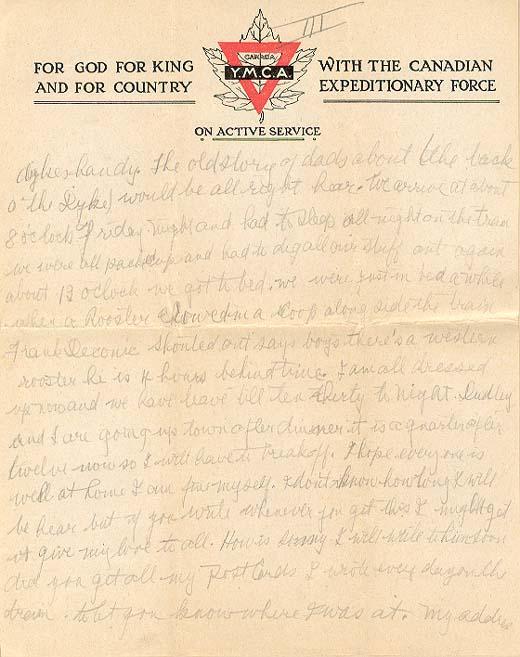 III
CANADA
Y.M.C.A.
FOR GOD FOR KING
AND FOR COUNTRY
WITH THE CANADIAN
EXPEDITIONARY FORCE
ON ACTIVE SERVICE
dykes handy. The old story of dads about (the back
o' the Dyke) would be all right hear. We arrive at about
8 o'clock Friday night and had to sleep all night on the train
we were all packed up and had to dig all our stuff out again
about 12 oclock we got to bed. we were just in bed a while
when a Rooster Crowed in a Coop along side the train
Frank Deconic shouted out says boys there's a western
rooster he is 4 hours behind time. I am all dressed
up now and we have leave till ten thirty to night. Dudley
and I are going up town after dinner it is a quarter after
twelve now so I will have to break off. I hope every one is
well at home I am fine myself. I dont know how long I will
be hear but if you write whenever you get this I might get
it give my love to all. How is I will write to him soon
did you get all my Post Cards I wrote every day on the
train. to let you know where I was at. My addres